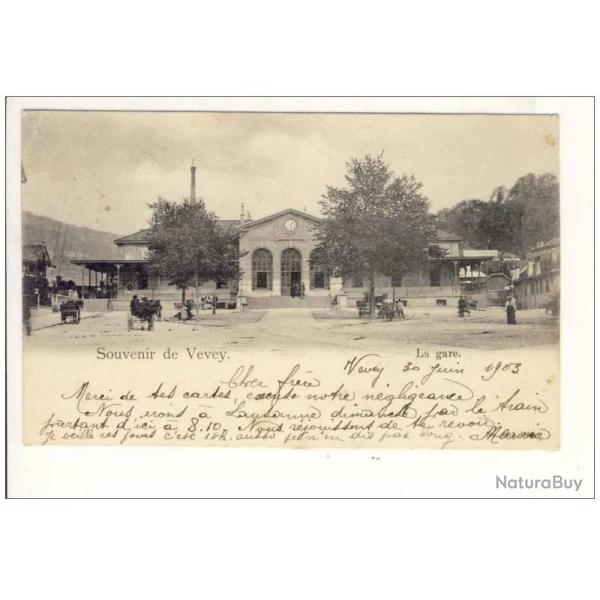 Souvenir de Vevey.
La gare.
Vevey 30 Juin 1903
Cher frère
Merci de tes cartes, excuse notre négligeance
Nous irons à Lausanne dimanche par le train
partant d'ici à 8.10. Nous réjouissons de te revoir.
Je veille ces jours c'est 10h. aussi je n'en dis pas long.
NaturaBuy